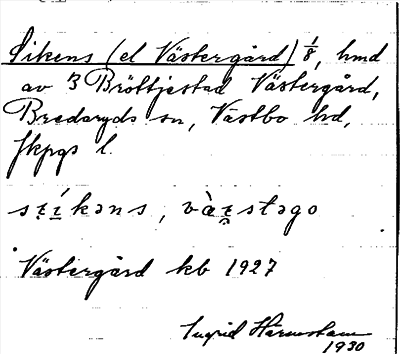 Sikens (el Västergård) 1/8, hmd
av 3 Bröttjestad Västergård,
Bredaryds sn, Västbo hd,
Jkpgs l.
sı̣́kəns, vὰstəgo
Västergård kb 1927
Ingrid Härenstam
1930